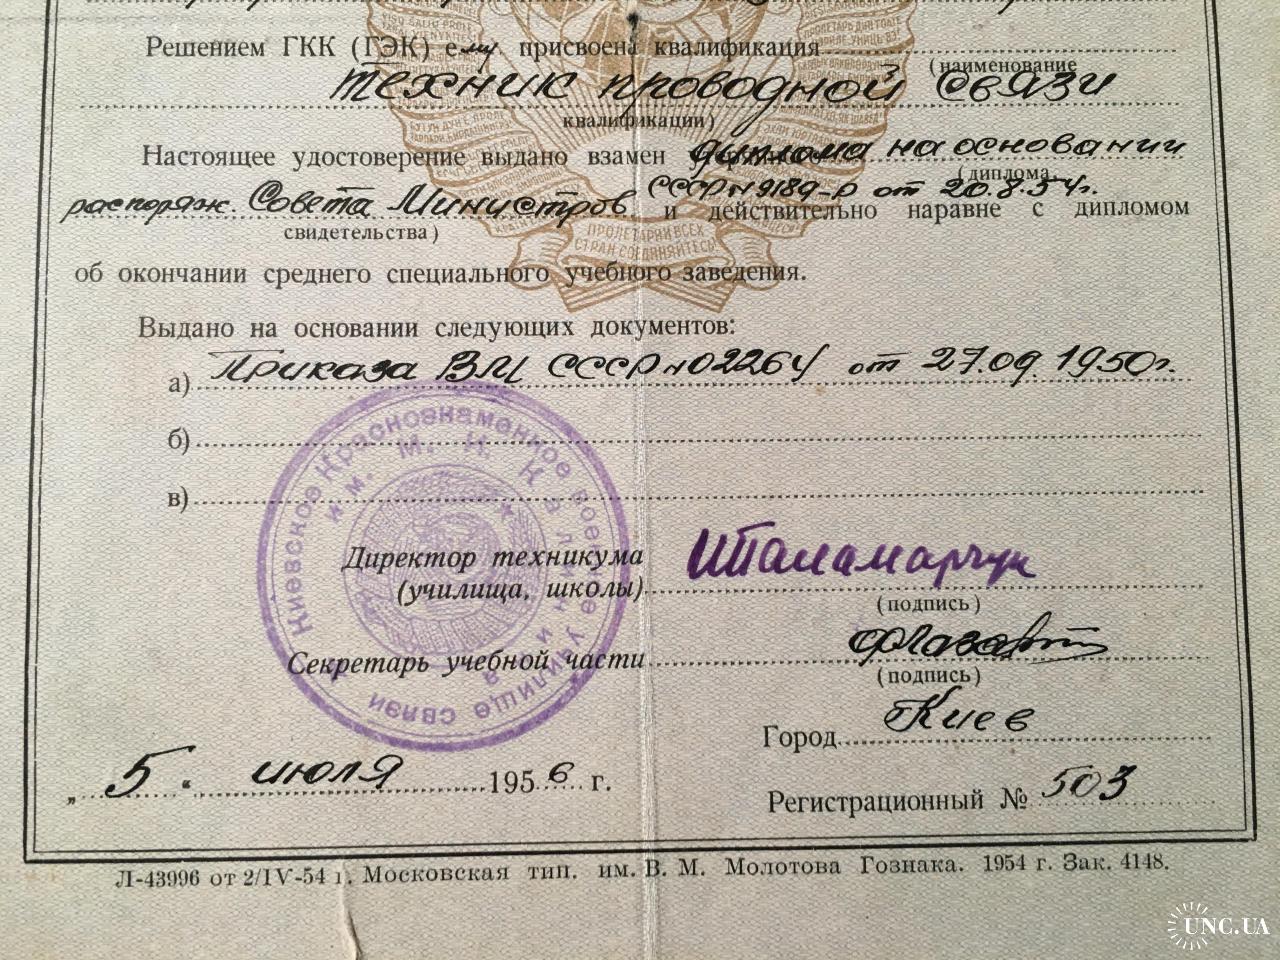 Решением ГКК (ГЭК) ему присвоена квалификация
(наименование
техник проводной связи
квалификации)
Настоящее удостоверение выдано взамен диплома на основании
(диплома,
распоряж. Совета Министров СССР №9189-р от 20.8.54г. и действительно наравне с дипломом
свидетельства)
об окончании среднего специального учебного заведения.
Выдано на основании следующих документов:
а) Приказа ВМ СССР №02264 от 27.09 1950г.
б)
в)
Киевское Краснознаменное военное училище связи
им. М. И. Калинина
ПРОЛЕТАРИИ ВСЕХ
СТРАН СОЕДИНЯЙТЕСЬ!
Директор техникума
(училища, школы)
(подпись)
Секретарь учебной части
(подпись)
Город Киев
„5“ июля 1956 г.
Регистрационный № 503
Л-43996 от 2/IV-54 г. Московская тип. им. В. М. Молотова Гознака. 1954 г. Зак. 4148.
UNC.UA